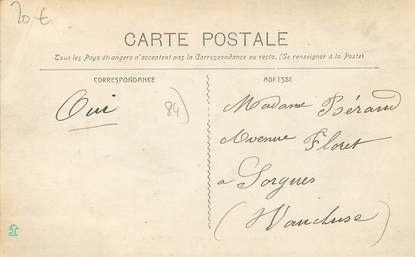 20 €
CARTE POSTALE
Tous les Pays étrangers n'acceptent pas la Correspondance au recto. (Se renseigner à la Poste)
CORRESPONDANCE
ADRESSE
Oui
84
Madame Bérard
Avenue Floret
a Sorgues
(Vaucluse)